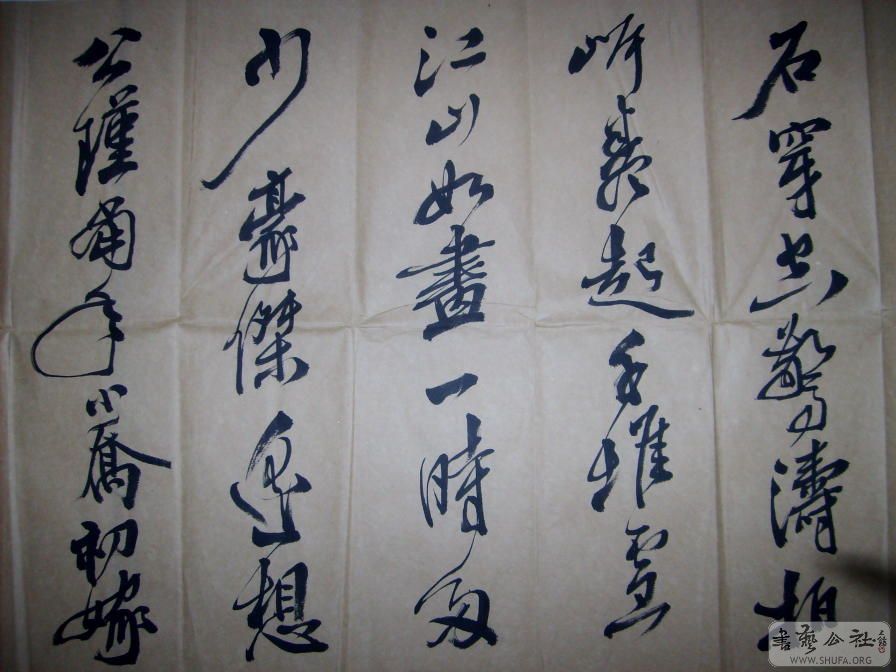 石穿空驚濤拍
岸裂起千堆雪
江山如畫一時多
少豪傑遙想
公瑾當年小喬初嫁
書藝公社
WWW.SHUFA.ORG